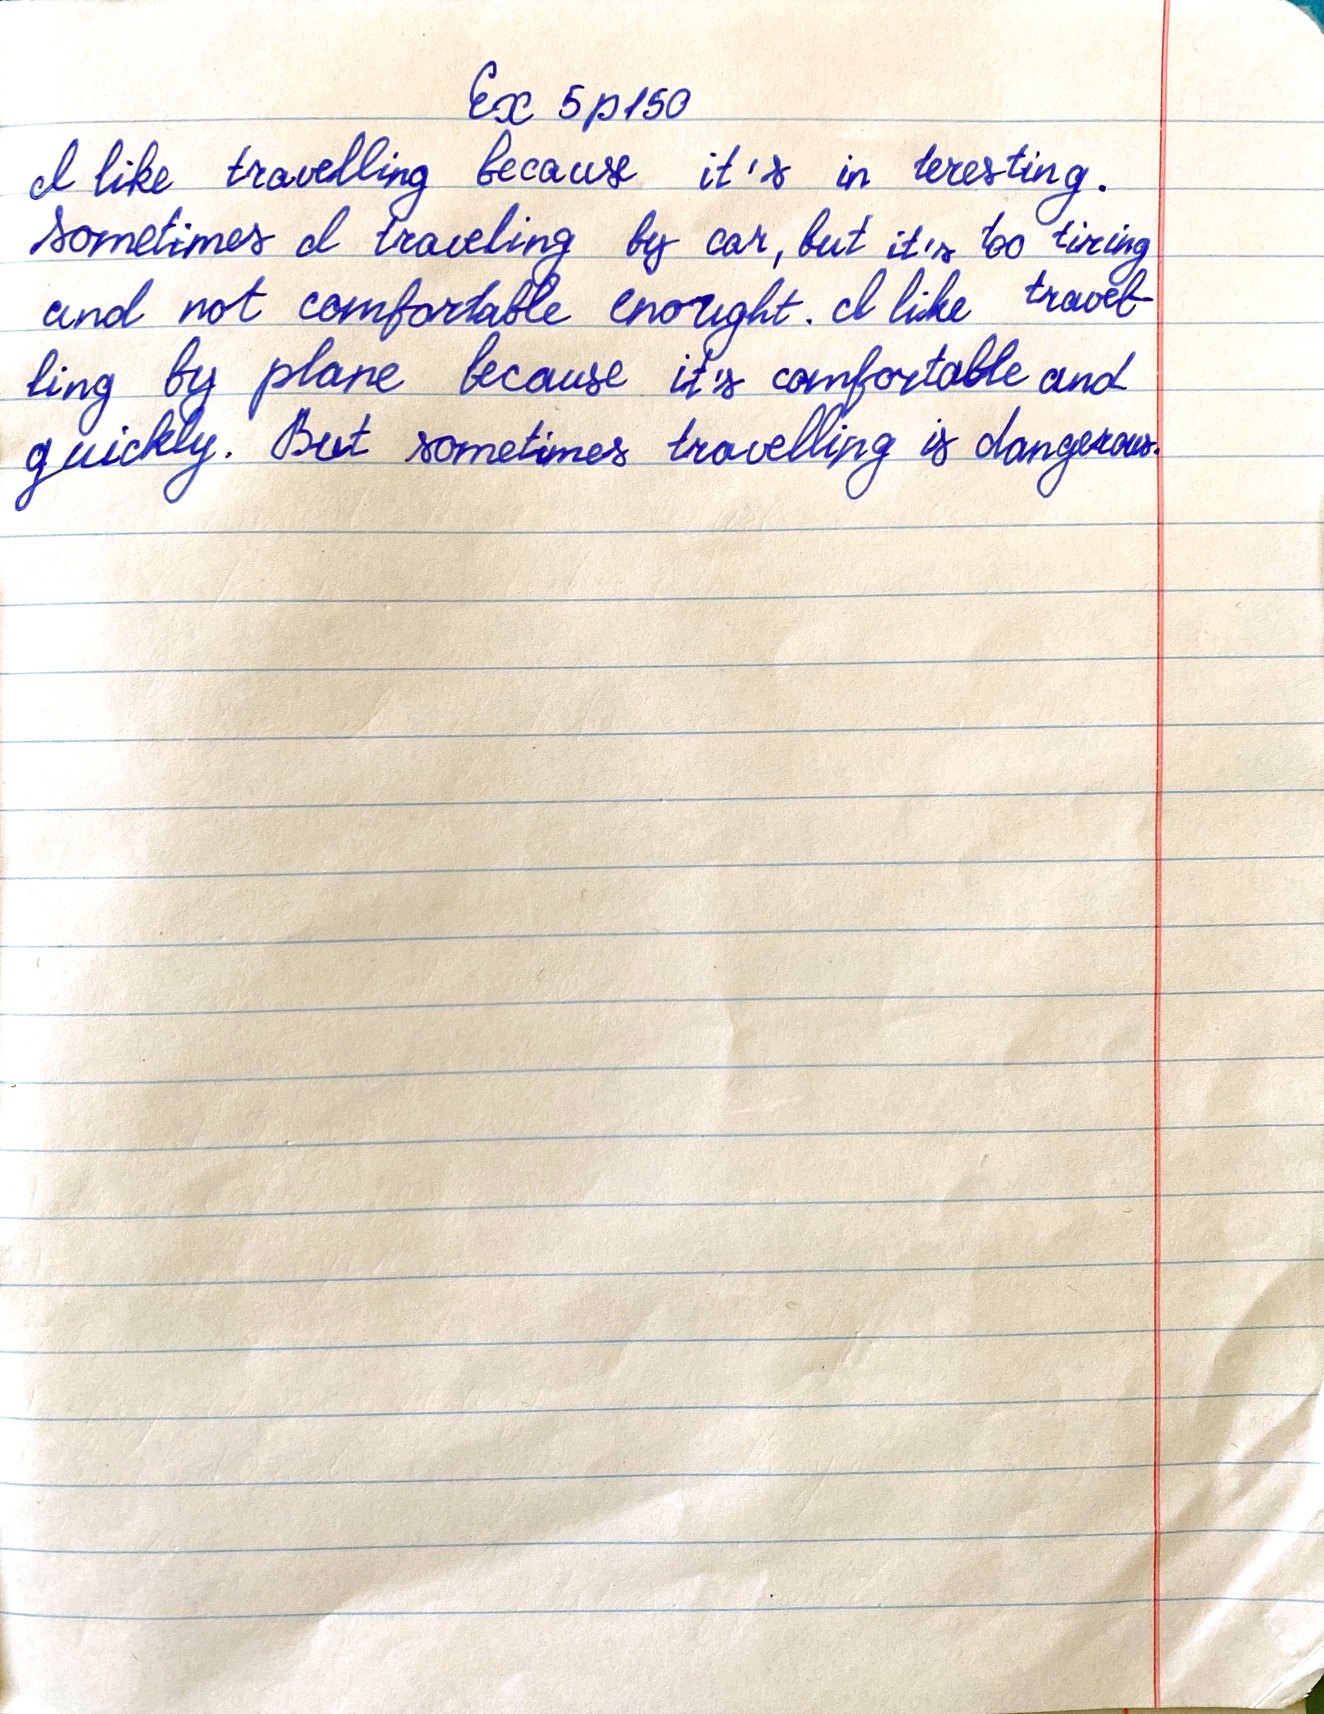 Ex 5 p 150
I like travelling because it's in teresting.
Sometimes I traveling by car, but it's too tiring
and not comfortable enought. I like travel-
ling by plane because it's comfortable and
quickly. But sometimes travelling is dangerous.